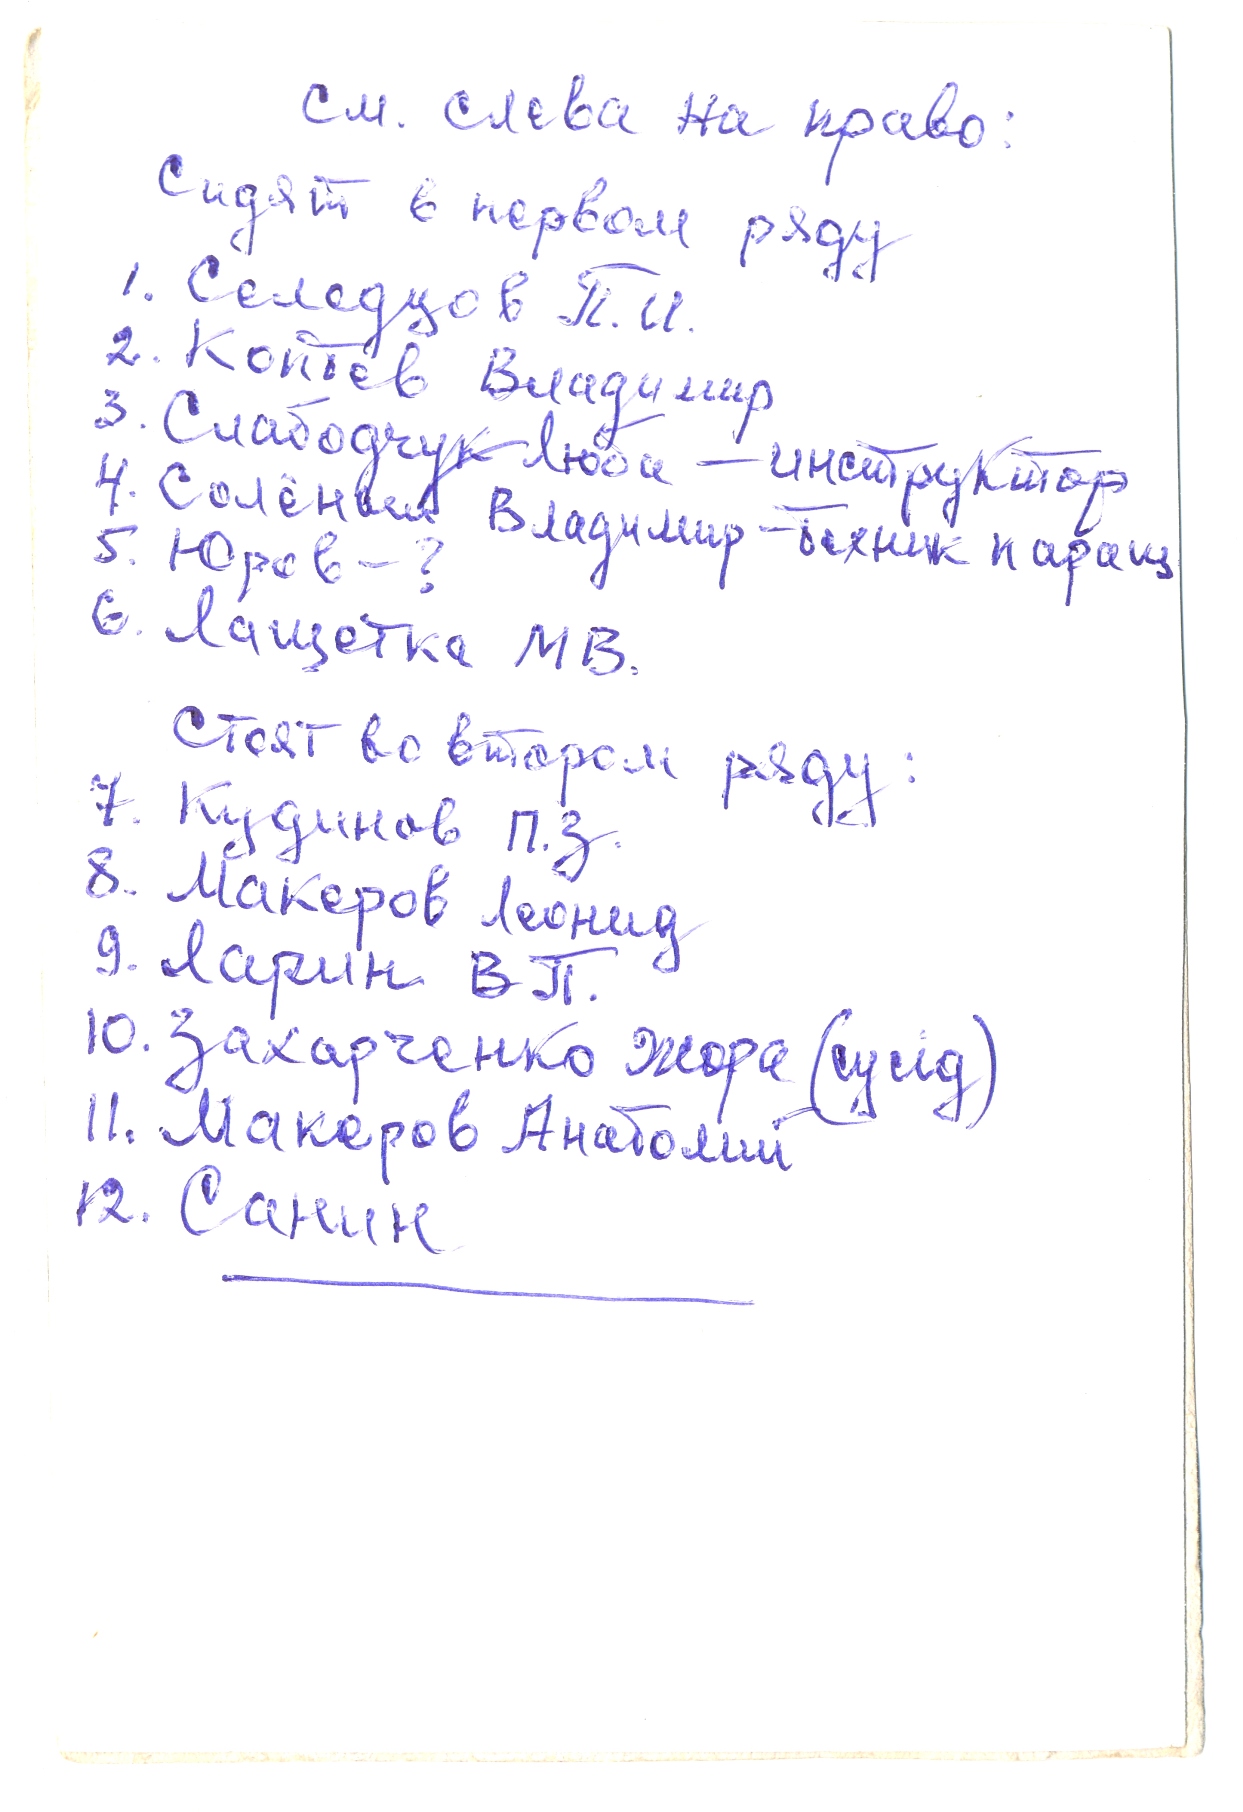 См. слева на право:
Сидят в первом ряду
1. Селедцов П.И.
2. Коптев Владимир
3. Слабодчук Люба – инструктор
4. Солёный Владимир – техник параш
5. Юров – ?
6. Лащетка М В.
Стоят во втором ряду:
7. Кудинов П.З.
8. Макеров Леонид
9. Ларин В П.
10. Захарченко Жора (сусід)
11. Макеров Анатолий
12. Санин